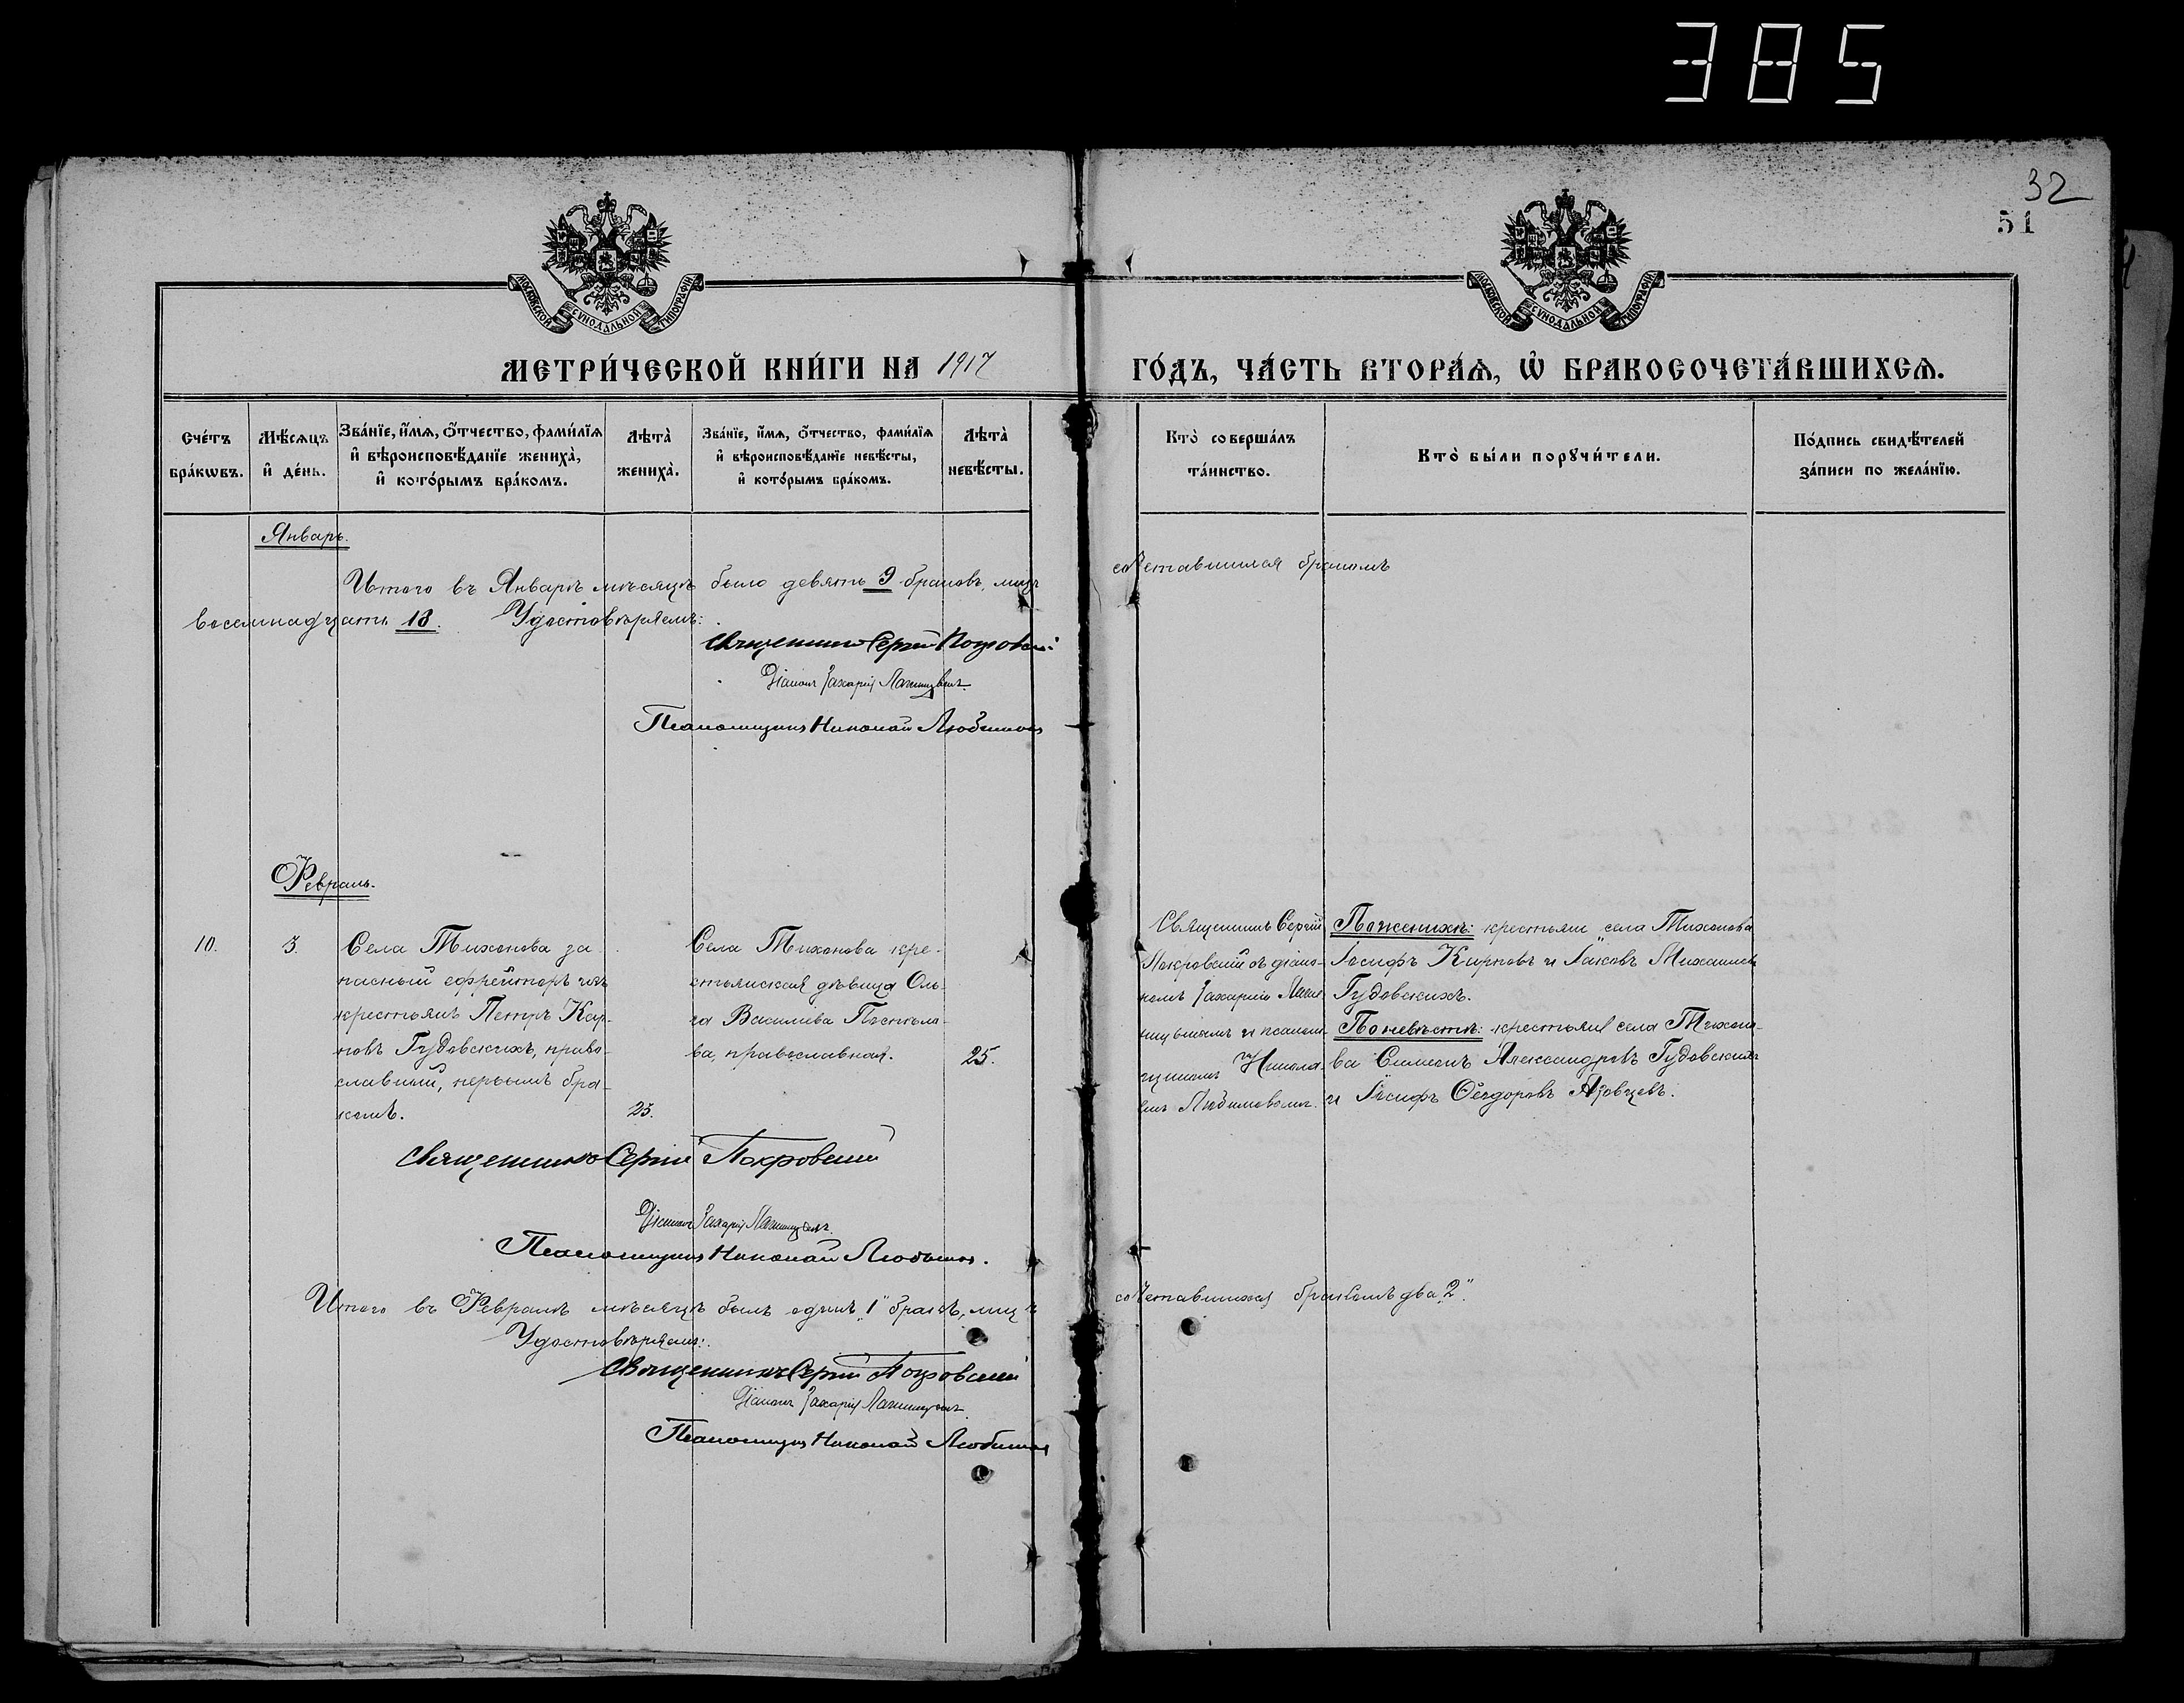 385
32
51
МОСКОВСКОЙ СѴНОДАЛЬНОЙ ТИПОГРАФІИ
МОСКОВСКОЙ СѴНОДАЛЬНОЙ ТИПОГРАФІИ
МЕТРИ́ЧЕСКОЙ КНИ́ГИ НА 1917
ГО́ДЪ, ЧА́СТЬ ВТОРА́Ѧ, Ѽ БРАКОСОЧЕТА́ВШИХСѦ.
Сче́тъ
бра́кѡвъ.
Мѣ́сѧцъ
и҆ де́нь.
Зва́нїе, и҆́мѧ, ѻ҆́тчество, фами́лїѧ
и҆ вѣроисповѣ́данїе жениха̀,
и҆ кото́рымъ бра́комъ.
Лѣта̀
жениха̀.
Зва́нїе, и҆́мѧ, ѻ҆́тчество, фами́лїѧ
и҆ вѣроисповѣ́данїе невѣ́сты,
и҆ кото́рымъ бра́комъ.
Лѣта̀
невѣ́сты.
Кто̀ соверша́лъ
та́инство.
Кто̀ бы́ли порꙋчи́тели.
По́дпись свидѣ́телей
за́писи по жела́нїю.
Январь.
Итого въ Январѣ мѣсяцѣ было девять 9 браковъ, лицъ
сочетавшихся бракомъ
восемнадцать 18. Удостовѣряемъ:
Священникъ Сергій Покровскій
Діаконъ Захарій
Псаломщикъ Николай Любимовъ
Февраль.
10.
3.
Села Тихонова за-
пасный ефрейторъ изъ
крестьянъ Петръ Кар-
повъ Гудовскихъ, право-
славный, первымъ бра-
комъ.
25.
Села Тихонова кре-
стьянская дѣвица Оль-
га Василіева
ва, православная.
25.
Священникъ Сергій
Покровскій съ діако-
номъ Захаріею
и псалом-
щикомъ Никола-
емъ Любимовымъ.
По женихѣ: крестьяне села Тихонова
Іосифъ Карповъ и Іаковъ Михаиловъ
Гудовскихъ.
По невѣстѣ: крестьяне села Тихоно-
ва Симеонъ Александровъ Гудовскихъ
и Іосифъ Ѳеодоровъ Азовцевъ.
Священникъ Сергій Покровскій
Діаконъ Захарій
Псаломщикъ Николай Любимовъ.
Итого въ Февралѣ мѣсяцѣ былъ одинъ „1" бракъ, лицъ
сочетавшихся бракомъ два „2".
Удостовѣряемъ:
Священникъ Сергій Покровскій
Діаконъ Захарій
Псаломщикъ Николай Любимовъ